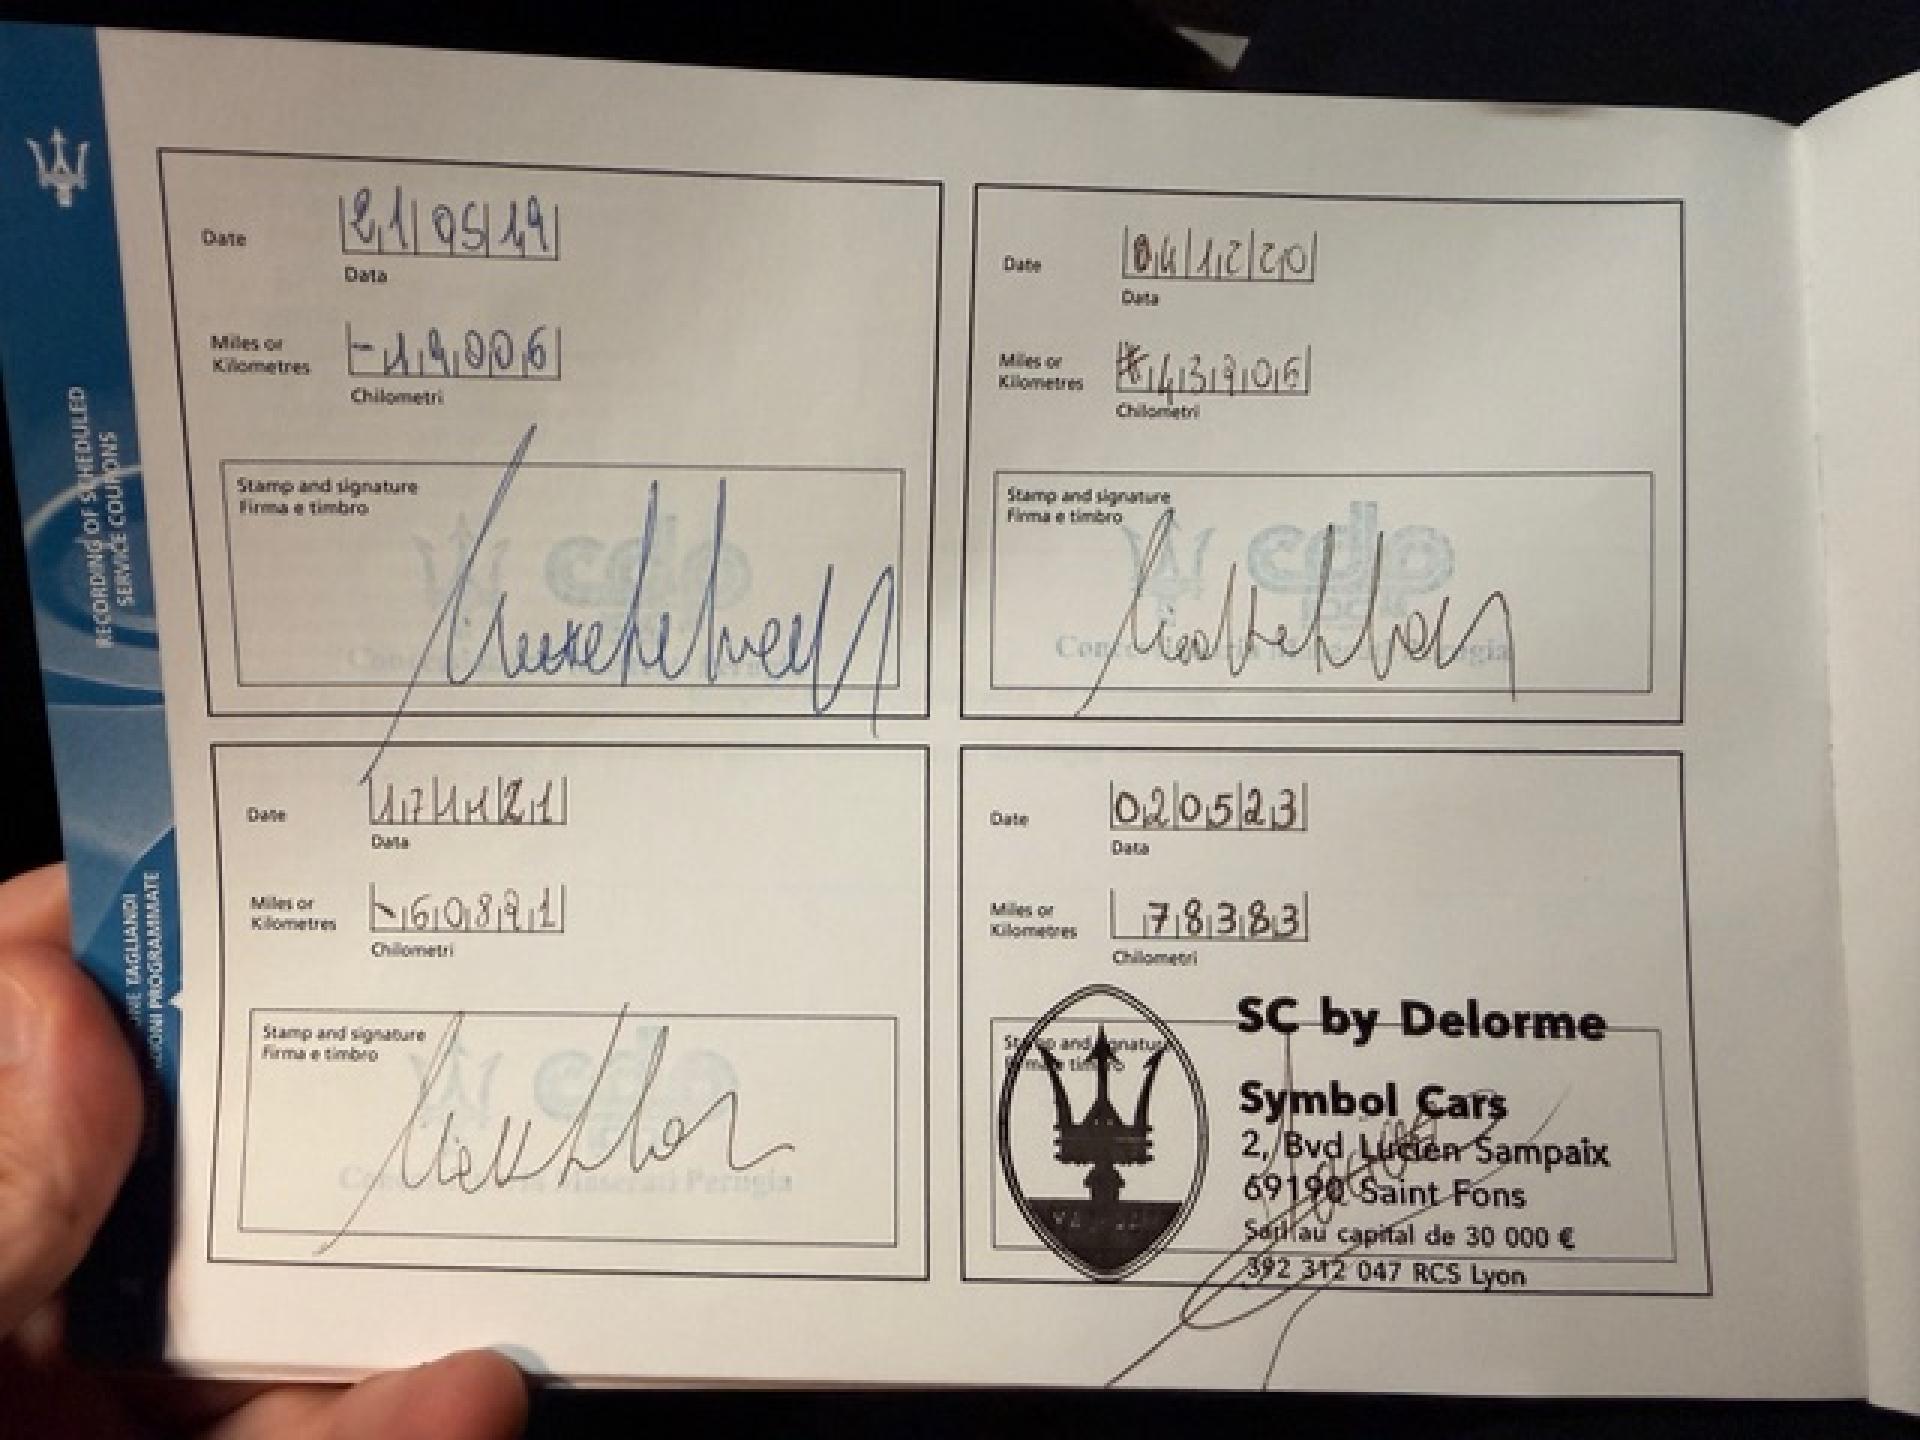 RECORDING OF SCHEDULED
SERVICE COUPONS
TAGLIANDI
PROGRAMMATE
Date 21 05 19
Data
Miles or
Kilometres -19006
Chilometri
Stamp and signature
Firma e timbro
cdp
Date 04 12 20
Data
Miles or
Kilometres 43906
Chilometri
Stamp and signature
Firma e timbro
cdp
Concessionaria Maserati Perugia
Date 17 11 21
Data
Miles or
Kilometres 60891
Chilometri
Stamp and signature
Firma e timbro
cdp
Concessionaria Maserati Perugia
Date 02 05 23
Data
Miles or
Kilometres 78383
Chilometri
Stamp and signature
Firma e timbro
SC by Delorme
Symbol Cars
2, Bvd Lucien Sampaix
69190 Saint Fons
Sarl au capital de 30 000 €
392 312 047 RCS Lyon